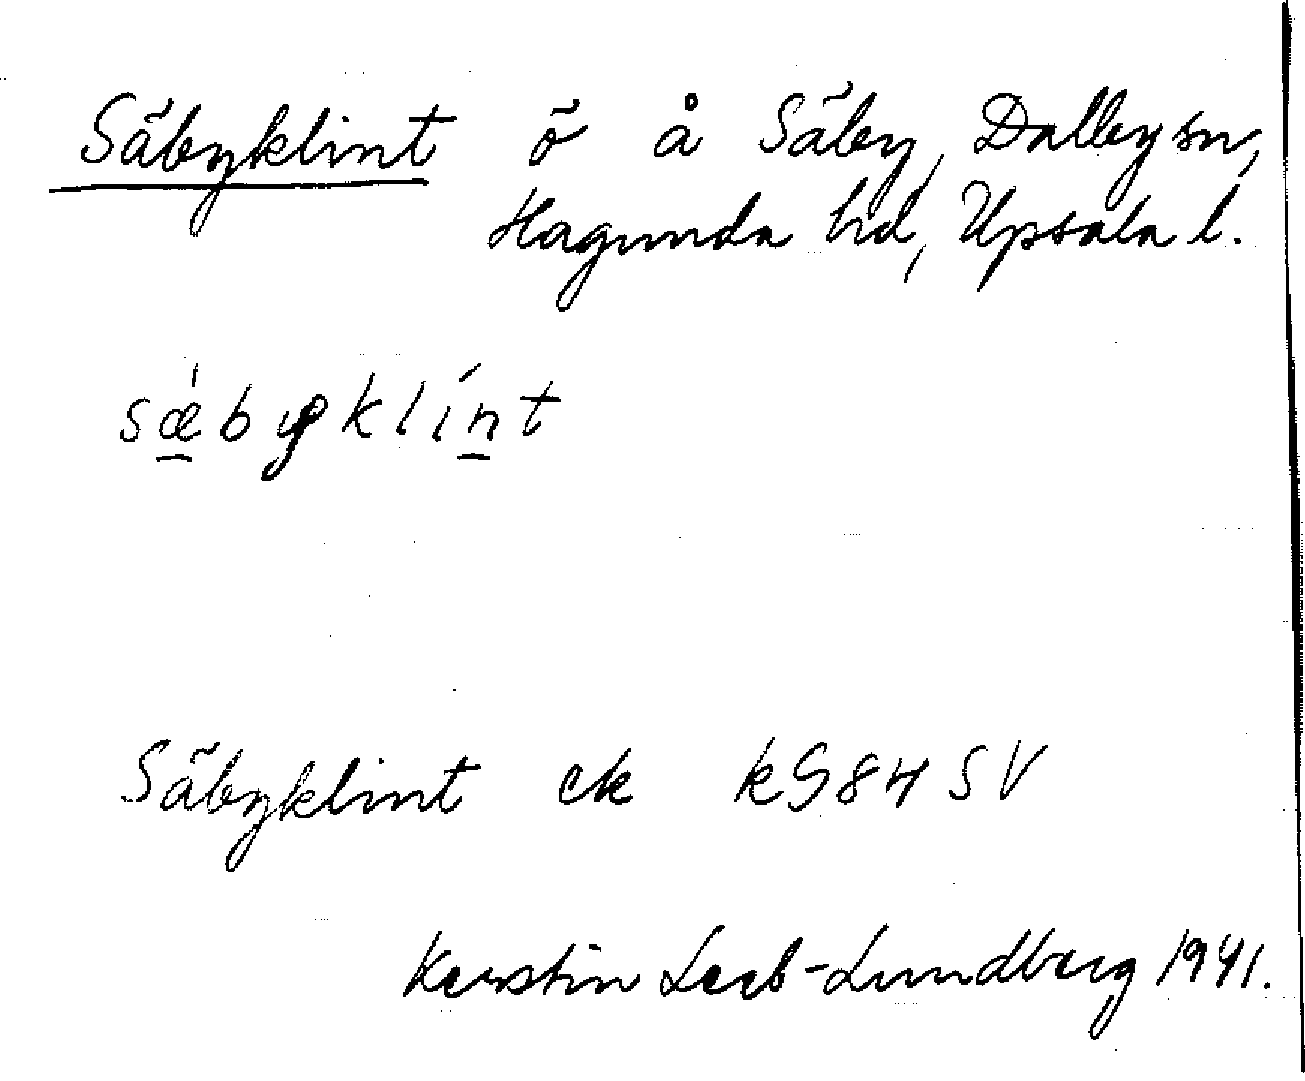 Säbyklint ö å Säby, Dalby sn,
Hagunda hd, Upsala l.
sǽbyklínt
Säbyklint ek kS84SV
Kerstin Leeb-Lundberg 1941.